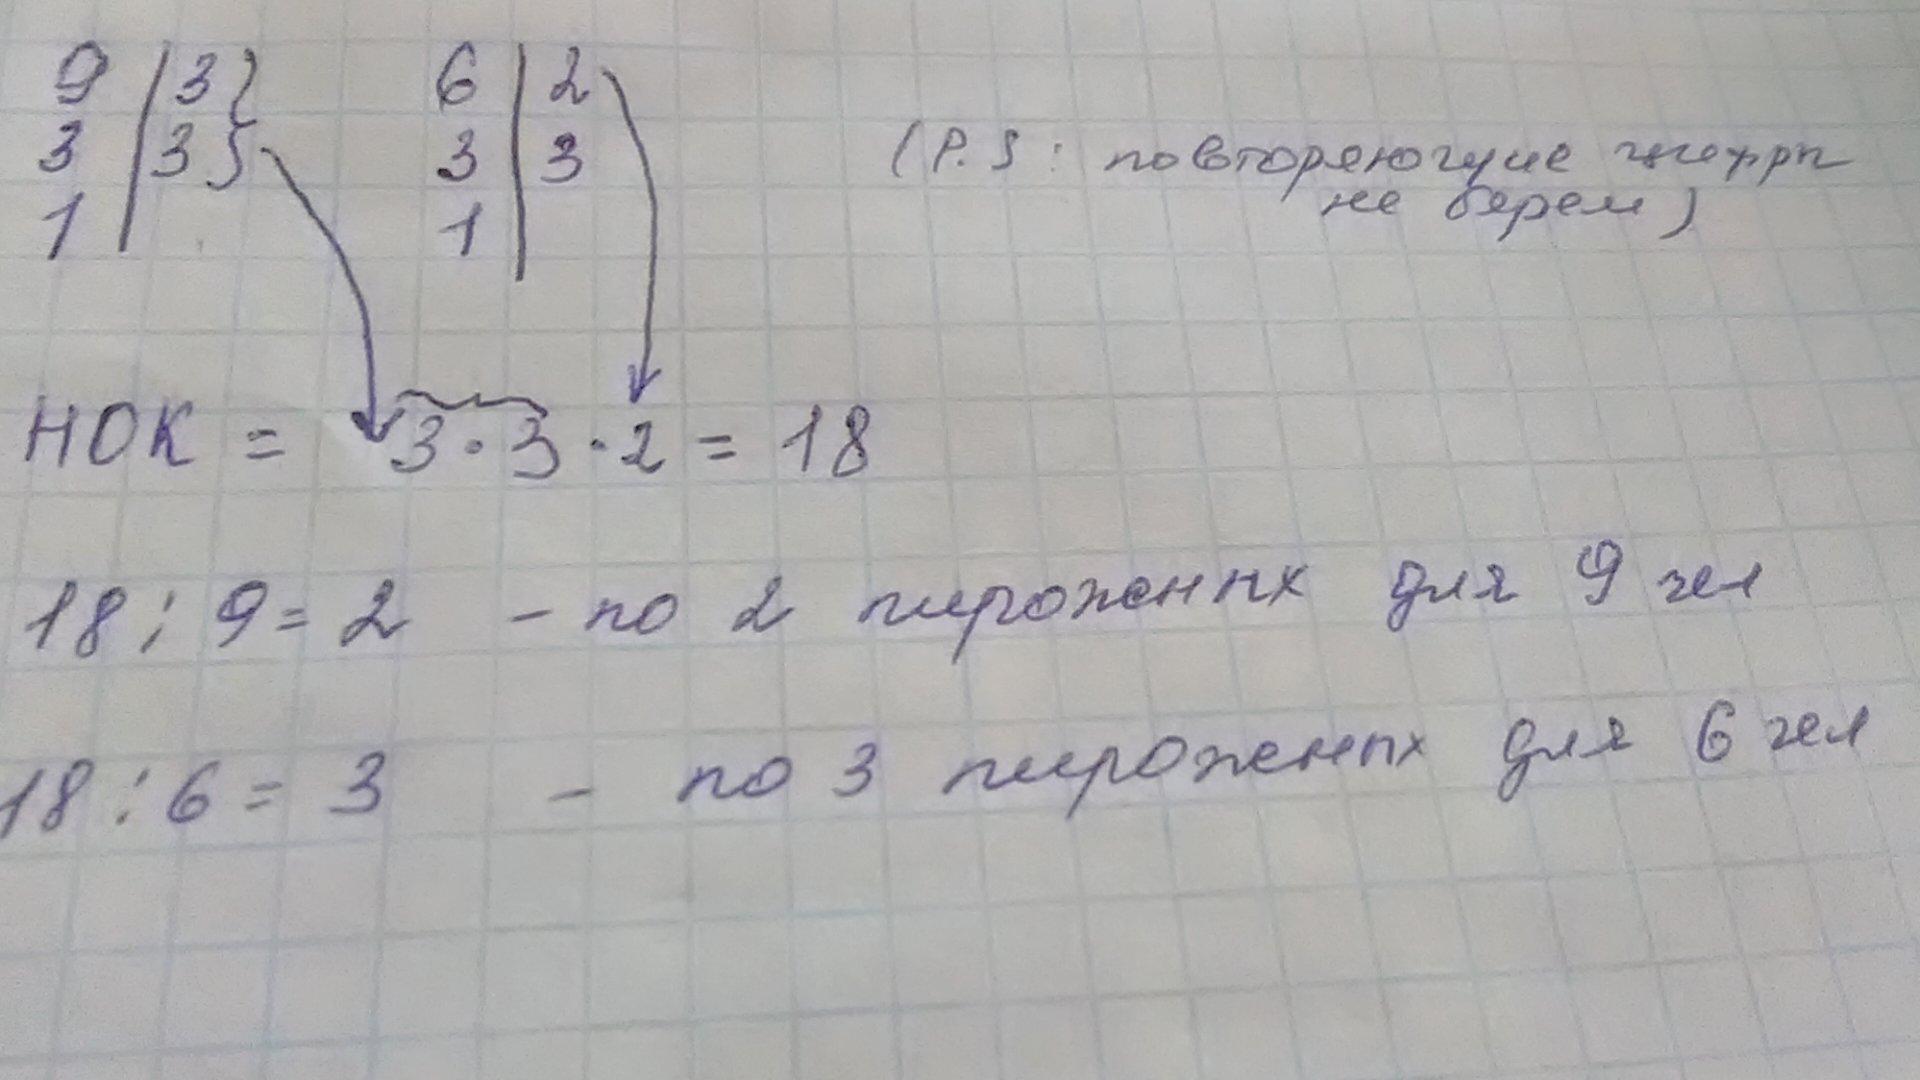 9 | 3 6 | 2
3 | 3 3 | 3
1 | 1 |
(P.S: повторяющие цифры
не берем)
НОК = 3 · 3 · 2 = 18
18 : 9 = 2 - по 2 пироженных для 9 чел
18 : 6 = 3 - по 3 пироженых для 6 чел